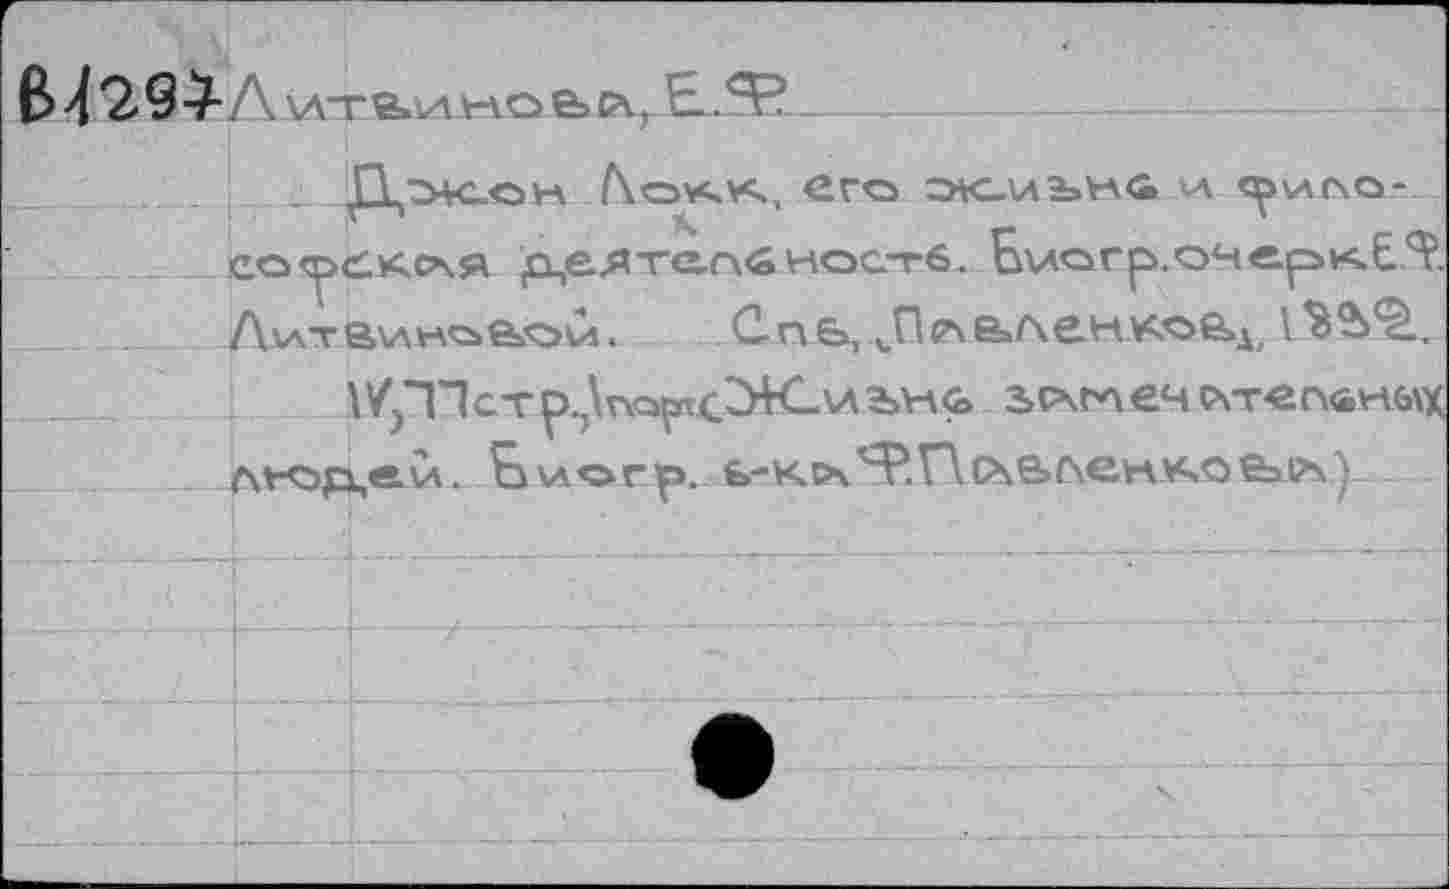 В4297 Литвинова, Е.Ф.
Джон Локк, его жизнь и фило-
софская деятельность. Биогр. очерк Е.Ф.
Литвиновой. Спб, Павленков, 1892.
IV, 77 стр., 1 портс (Жизнь замечательных
людей. Биогр. б-ка Ф. Павленкова)